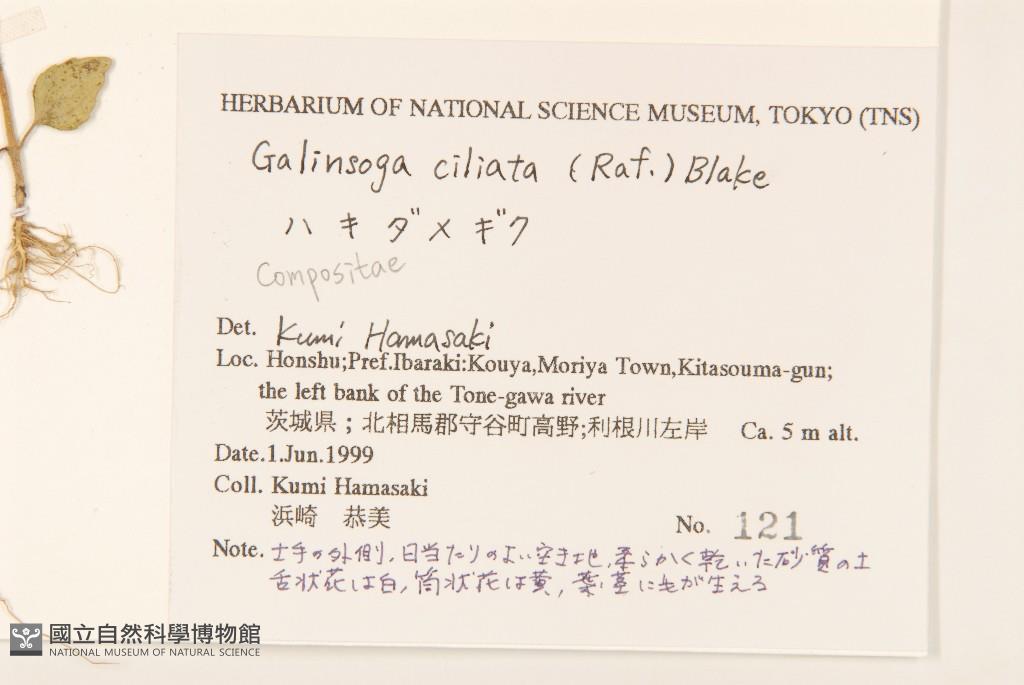 HERBARIUM OF NATIONAL SCIENCE MUSEUM, TOKYO (TNS)
Galinsoga ciliata (Raf.) Blake
ハキダメギク
Compositae
Det. Kumi Hamasaki
Loc. Honshu;Pref.Ibaraki:Kouya,Moriya Town,Kitasouma-gun;
the left bank of the Tone-gawa river
茨城県；北相馬郡守谷町高野;利根川左岸 Ca. 5 m alt.
Date.1.Jun.1999
Coll. Kumi Hamasaki
浜崎 恭美
No. 121
Note. 土手の外側,日当たりのよい空き地,柔らかく乾いた砂質の土
舌状花は白,筒状花は黄,葉,茎に毛が生える
國立自然科學博物館
NATIONAL MUSEUM OF NATURAL SCIENCE